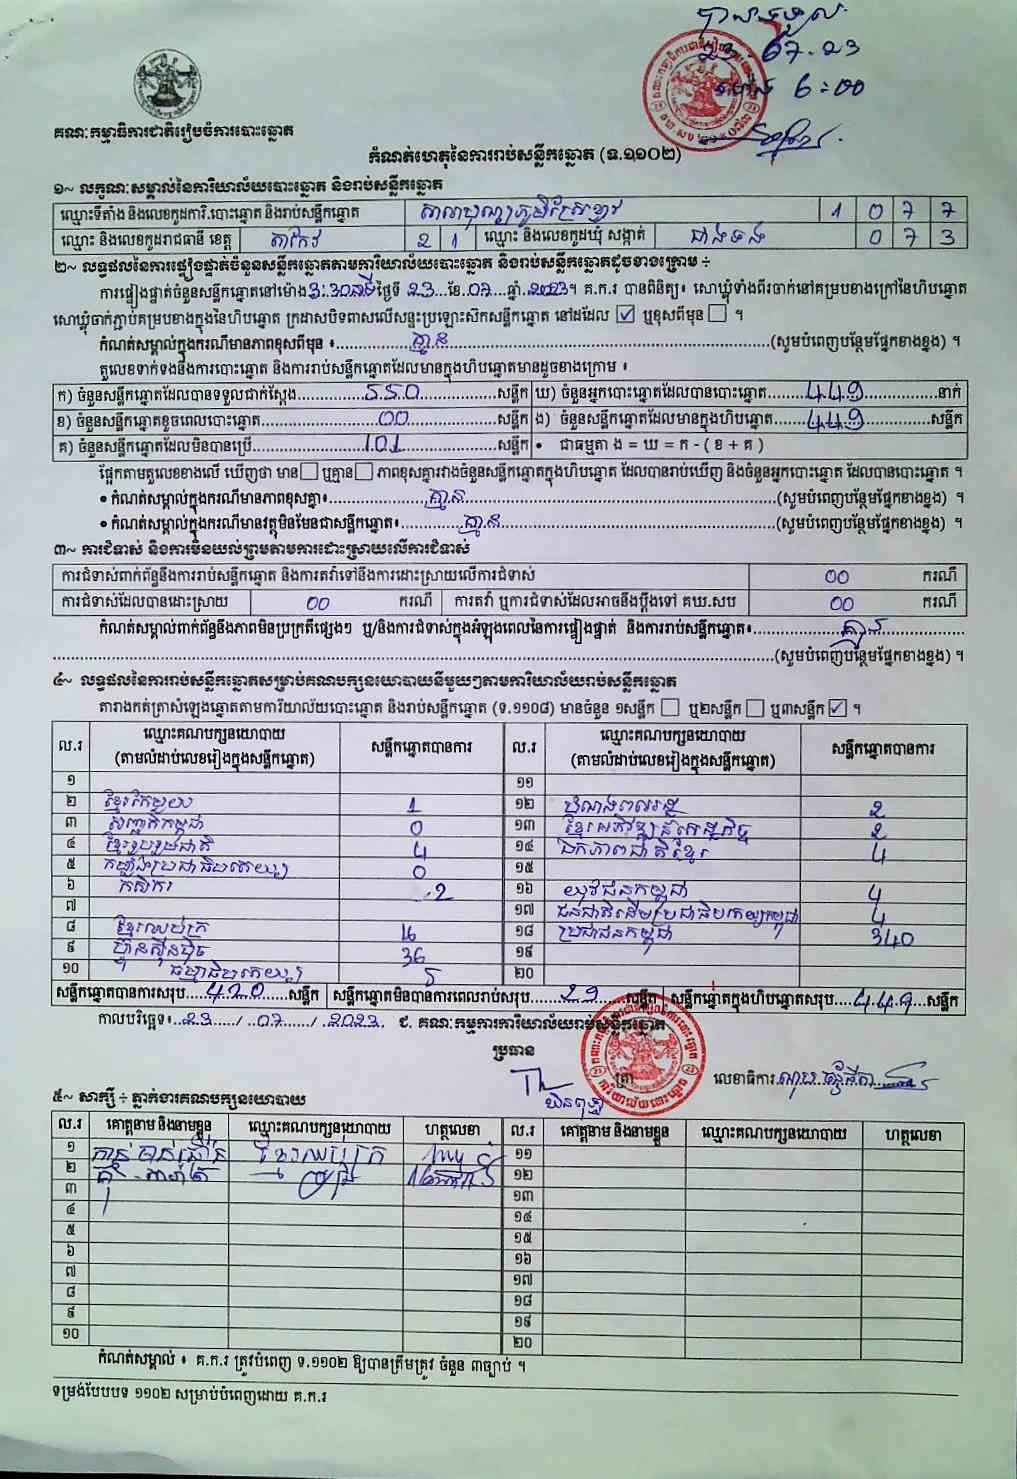 បានទទួល
23-07-23
ម៉ោង 6:00
គណៈកម្មាធិការជាតិរៀបចំការបោះឆ្នោត
កំណត់ហេតុនៃការរាប់សន្លឹកឆ្នោត (ទ.១១០២)
១~ លក្ខណៈសម្គាល់នៃការិយាល័យបោះឆ្នោត និងរាប់សន្លឹកឆ្នោត
ឈ្មោះទីតាំង និងលេខកូដការិ.បោះឆ្នោត និងរាប់សន្លឹកឆ្នោត 1 0 7 7
ឈ្មោះ និងលេខកូដរាជធានី ខេត្ត តាកែវ 2 1 ឈ្មោះ និងលេខកូដឃុំ សង្កាត់ ជាងទង 0 7 3
២~ លទ្ធផលនៃការផ្ទៀងផ្ទាត់ចំនួនសន្លឹកឆ្នោតតាមការិយាល័យបោះឆ្នោត និងរាប់សន្លឹកឆ្នោតដូចខាងក្រោម ÷
ការផ្ទៀងផ្ទាត់ចំនួនសន្លឹកឆ្នោតនៅម៉ោង 3:30នាទី ថ្ងៃទី 23 ខែ 07 ឆ្នាំ 2023។ គ.ក.រ បានពិនិត្យ៖ សោឃ្លុំទាំងពីរចាក់នៅគម្របខាងក្រៅនៃហិបឆ្នោត
សោឃ្លុំចាក់ភ្ជាប់គម្របខាងក្នុងនៃហិបឆ្នោត ក្រដាសបិទពាសលើសន្ទះប្រឡោះស៊កសន្លឹកឆ្នោត នៅដដែល ☑ ឬខុសពីមុន ☐ ។
កំណត់សម្គាល់ក្នុងករណីមានភាពខុសពីមុន ៖ គ្មាន (សូមបំពេញបន្ថែមផ្នែកខាងខ្នង) ។
តួលេខទាក់ទងនឹងការបោះឆ្នោត និងការរាប់សន្លឹកឆ្នោតដែលមានក្នុងហិបឆ្នោតមានដូចខាងក្រោម ៖
ក) ចំនួនសន្លឹកឆ្នោតដែលបានទទួលជាក់ស្តែង 550 សន្លឹក ឃ) ចំនួនអ្នកបោះឆ្នោតដែលបានបោះឆ្នោត 449 នាក់
ខ) ចំនួនសន្លឹកឆ្នោតខូចពេលបោះឆ្នោត 00 សន្លឹក ង) ចំនួនសន្លឹកឆ្នោតដែលមានក្នុងហិបឆ្នោត 449 សន្លឹក
គ) ចំនួនសន្លឹកឆ្នោតដែលមិនបានប្រើ 101 សន្លឹក • ជាធម្មតា ង = ឃ = ក - ( ខ + គ )
ផ្អែកតាមតួលេខខាងលើ ឃើញថា មាន ☐ ឬគ្មាន ☐ ភាពខុសគ្នារវាងចំនួនសន្លឹកឆ្នោតក្នុងហិបឆ្នោត ដែលបានរាប់ឃើញ និងចំនួនអ្នកបោះឆ្នោត ដែលបានបោះឆ្នោត ។
• កំណត់សម្គាល់ក្នុងករណីមានភាពខុសគ្នា៖ គ្មាន (សូមបំពេញបន្ថែមផ្នែកខាងខ្នង) ។
• កំណត់សម្គាល់ក្នុងករណីមានវត្ថុមិនមែនជាសន្លឹកឆ្នោត៖ គ្មាន (សូមបំពេញបន្ថែមផ្នែកខាងខ្នង) ។
៣~ ការជំទាស់ និងការមិនយល់ព្រមតាមការដោះស្រាយលើការជំទាស់
ការជំទាស់ពាក់ព័ន្ធនឹងការរាប់សន្លឹកឆ្នោត និងការតវ៉ាទៅនឹងការដោះស្រាយលើការជំទាស់ 00 ករណី
ការជំទាស់ដែលបានដោះស្រាយ 00 ករណី ការតវ៉ា ឬការជំទាស់ដែលអាចនឹងប្តឹងទៅ គឃ.សប 00 ករណី
កំណត់សម្គាល់ពាក់ព័ន្ធនឹងភាពមិនប្រក្រតីផ្សេងៗ ឬ/និងការជំទាស់ក្នុងអំឡុងពេលនៃការផ្ទៀងផ្ទាត់ និងការរាប់សន្លឹកឆ្នោត៖ គ្មាន
(សូមបំពេញបន្ថែមផ្នែកខាងខ្នង) ។
៤~ លទ្ធផលនៃការរាប់សន្លឹកឆ្នោតសម្រាប់គណបក្សនយោបាយនីមួយៗតាមការិយាល័យរាប់សន្លឹកឆ្នោត
តារាងកត់ត្រាសំឡេងឆ្នោតតាមការិយាល័យបោះឆ្នោត និងរាប់សន្លឹកឆ្នោត (ទ.១១០៨) មានចំនួន ១សន្លឹក ☐ ឬ២សន្លឹក ☐ ឬ៣សន្លឹក ☑ ។
ល.រ ឈ្មោះគណបក្សនយោបាយ (តាមលំដាប់លេខរៀងក្នុងសន្លឹកឆ្នោត) សន្លឹកឆ្នោតបានការ ល.រ ឈ្មោះគណបក្សនយោបាយ (តាមលំដាប់លេខរៀងក្នុងសន្លឹកឆ្នោត) សន្លឹកឆ្នោតបានការ
១ ១១
២ ខ្មែរតែមួយ 1 ១២ 2
៣ សញ្ជាតិកម្ពុជា 0 ១៣ ខ្មែរអភិវឌ្ឍន៍សេដ្ឋកិច្ច 2
៤ ខ្មែររួបរួមជាតិ 4 ១៤ ឯកភាពជាតិខ្មែរ 4
៥ កម្លាំងប្រជាធិបតេយ្យ 0 ១៥
៦ កសិករ 2 ១៦ យុវជនកម្ពុជា 4
៧ ១៧ ជនជាតិដើមប្រជាធិបតេយ្យកម្ពុជា 4
៨ ខ្មែរឈប់ក្រ 16 ១៨ ប្រជាជនកម្ពុជា 340
៩ ហ៊្វុនស៊ិនប៉ិច 36 ១៩
១០ ធម្មាធិបតេយ្យ 5 ២០
សន្លឹកឆ្នោតបានការសរុប 420 សន្លឹក សន្លឹកឆ្នោតមិនបានការពេលរាប់សរុប 29 សន្លឹក សន្លឹកឆ្នោតក្នុងហិបឆ្នោតសរុប 449 សន្លឹក
កាលបរិច្ឆេទ៖ 23 / 07 / 2023 ជ. គណៈកម្មការការិយាល័យរាប់សន្លឹកឆ្នោត
ប្រធាន
ត្រា លេខាធិការ
៥~ សាក្សី ÷ ភ្នាក់ងារគណបក្សនយោបាយ
ល.រ គោត្តនាម និងនាមខ្លួន ឈ្មោះគណបក្សនយោបាយ ហត្ថលេខា ល.រ គោត្តនាម និងនាមខ្លួន ឈ្មោះគណបក្សនយោបាយ ហត្ថលេខា
១ ខ្មែរឈប់ក្រ ១១
២ ១២
៣ ១៣
៤ ១៤
៥ ១៥
៦ ១៦
៧ ១៧
៨ ១៨
៩ ១៩
១០ ២០
កំណត់សម្គាល់ ៖ គ.ក.រ ត្រូវបំពេញ ទ.១១០២ ឱ្យបានត្រឹមត្រូវ ចំនួន ៣ច្បាប់ ។
ទម្រង់បែបបទ ១១០២ សម្រាប់បំពេញដោយ គ.ក.រ